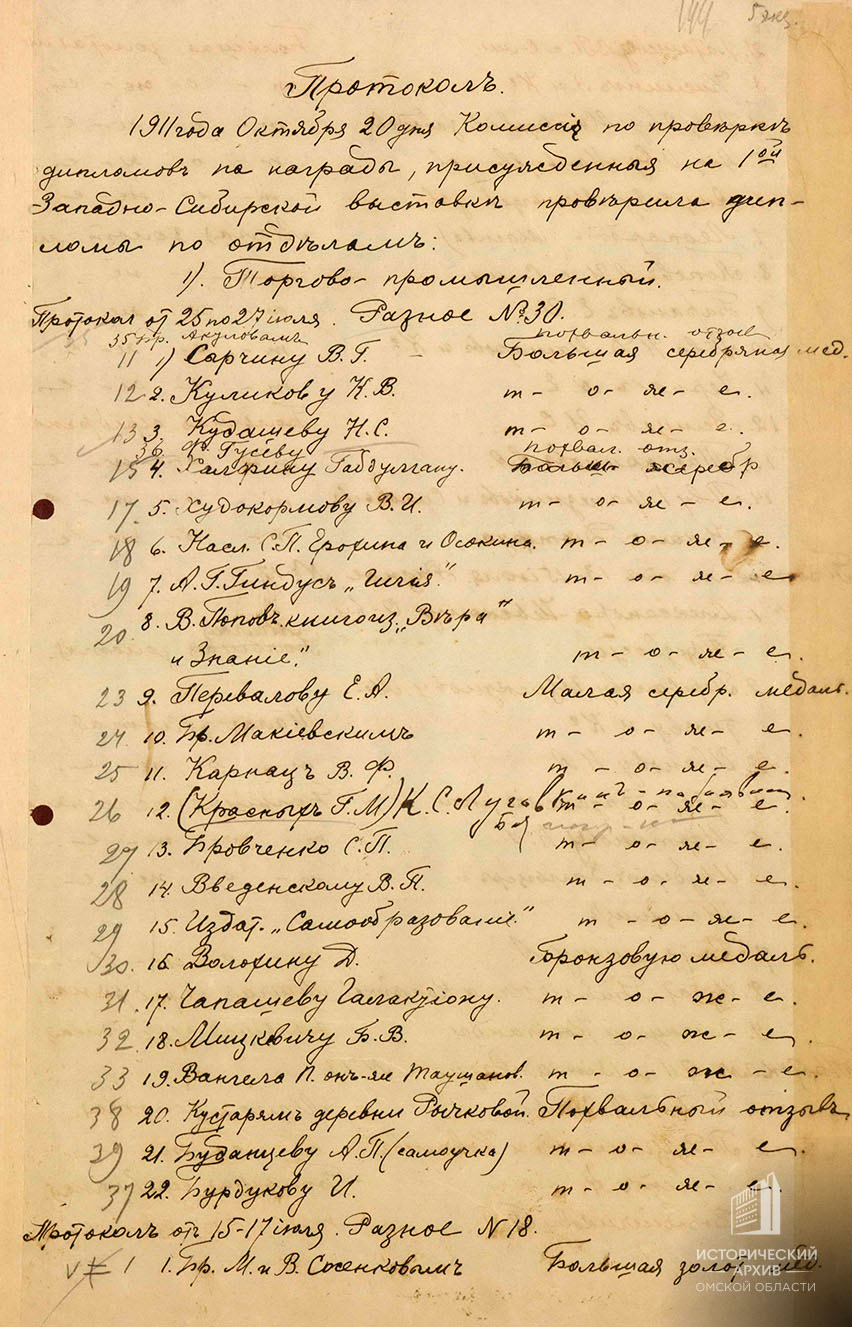 144 5 экз.
Протоколъ.
1911 года Октября 20 дня Комиссія по провѣркѣ
дипломовъ на награды, присужденныя на 1ой
Западно-Сибирской выставкѣ провѣрила дип-
ломы по отдѣламъ:
1). Торгово-промышленный.
Протокол от 25 по 27 іюля. Разное № 30.
35 Бр. Акуловамъ похвальн. отзыв
11 1) Сарчину В. Г. – Большая серебряная мед.
12 2. Куликову К. В. т – о – же – е.
13 3. Кудашеву Н. С. т – о – же – е.
36. Ф. Гусеву похвал. отз.
15 4. Халфину Габдулгану. Больш серебр
17. 5. Худокормову В. И. т – о – же – е.
18 6. Насл. С. П. Ерохина и Осокина. т – о – же – е.
19 7. А. Г. Гиндусъ „ т – о – же – е
20. 8. В. Поповъ книгоиз. „Вѣра"
и Знаніе". т – о – же – е.
23 9. Перевалову Е. А. Малая серебр. медаль.
24 10. Бр. Макіевскимъ т – о – же – е.
25 11. Карнацъ В. Ф. т – о – же – е.
26 12. (Красныхъ Г. М) К. С. т – о – же – е.
27 13. Бровченко С. П. т – о – же – е.
28 14. Введенскому В. П. т – о – же – е.
29 15. Издат. „Самообразованіе" т – о – же – е.
30. 16. Волохину Д. Бронзовую медаль.
31. 17. Чапашеву т – о – ж – е.
32 18. Мицкевичу Б. В. т – о – ж – е.
33 19. Вангела П. онъ-же Таушанов. т – о – ж – е.
38 20. Кустарямъ деревни Рычковой. Похвальный отзывъ
39 21. Буданцеву А. П. (самоучка) т – о – же – е.
37 22. Бурдукову И. т – о – же – е.
Протоколъ отъ 15-17 іюля. Разное N 18.
V 1 1. Бр. М. и В. Сосенковымъ Большая золот. мед.
ИСТОРИЧЕСКИЙ
АРХИВ
ОМСКОЙ ОБЛАСТИ